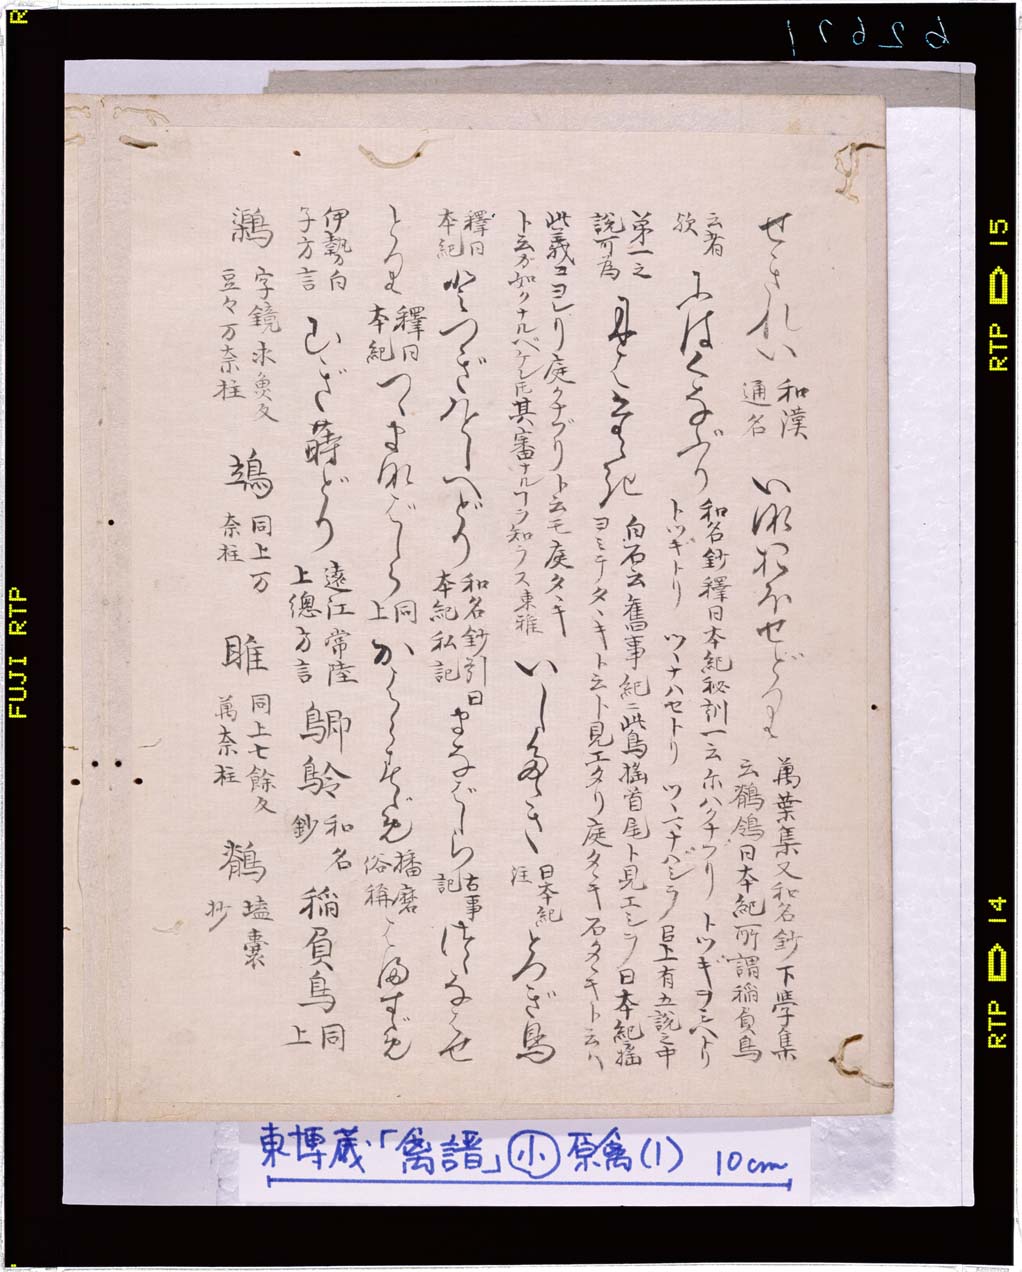 せきれい 和漢
通名 いねおほせどり 萬葉集又和名鈔下學集
云鶺鴒日本紀所謂稲負鳥
云者
欤 にはくなぶり 和名鈔釋日本紀秘訓一云ニハクナブリ トツギヲシヘトリ
トツギトリ ツヽナハセトリ ツヽマナバシラ 已上有五説之中
第一之
説可為 にはたゝき 白石云舊事紀ニ此鳥揺首尾ト見エシヲ日本紀揺
ヨミテタヽキト云ト見エタリ庭タヽキ石タヽキト云ハ
此義ニヨレリ庭クナブリト云モ庭タヽキ
ト云ガ如クナルベケレ𪜈其審ナルヿヲ知ラス東雅 いしたゝき 日本紀
注 とつぎ鳥
釋日
本紀 とつぎをしへどり 和名鈔引日
本紀私記 まなばしら 古事
記 つゝなはせ
とり 釋日
本紀 つゝまなばしら 同
上 かはらすゞめ 播磨
俗稱 はますゞめ
伊勢白
子方言 むぎ蒔どり 遠江常陸
上總方言 鶺鴒 和名
鈔 稲負鳥 同
上
鶎 字鏡
豆々万奈柱 同上万
奈柱 雎 同上七餘反
萬奈柱 鶺 壒嚢
抄
東博蔵「禽譜」小 原禽(1) 10cm
62671
FUJI RTP
RTP 15
RTP 14